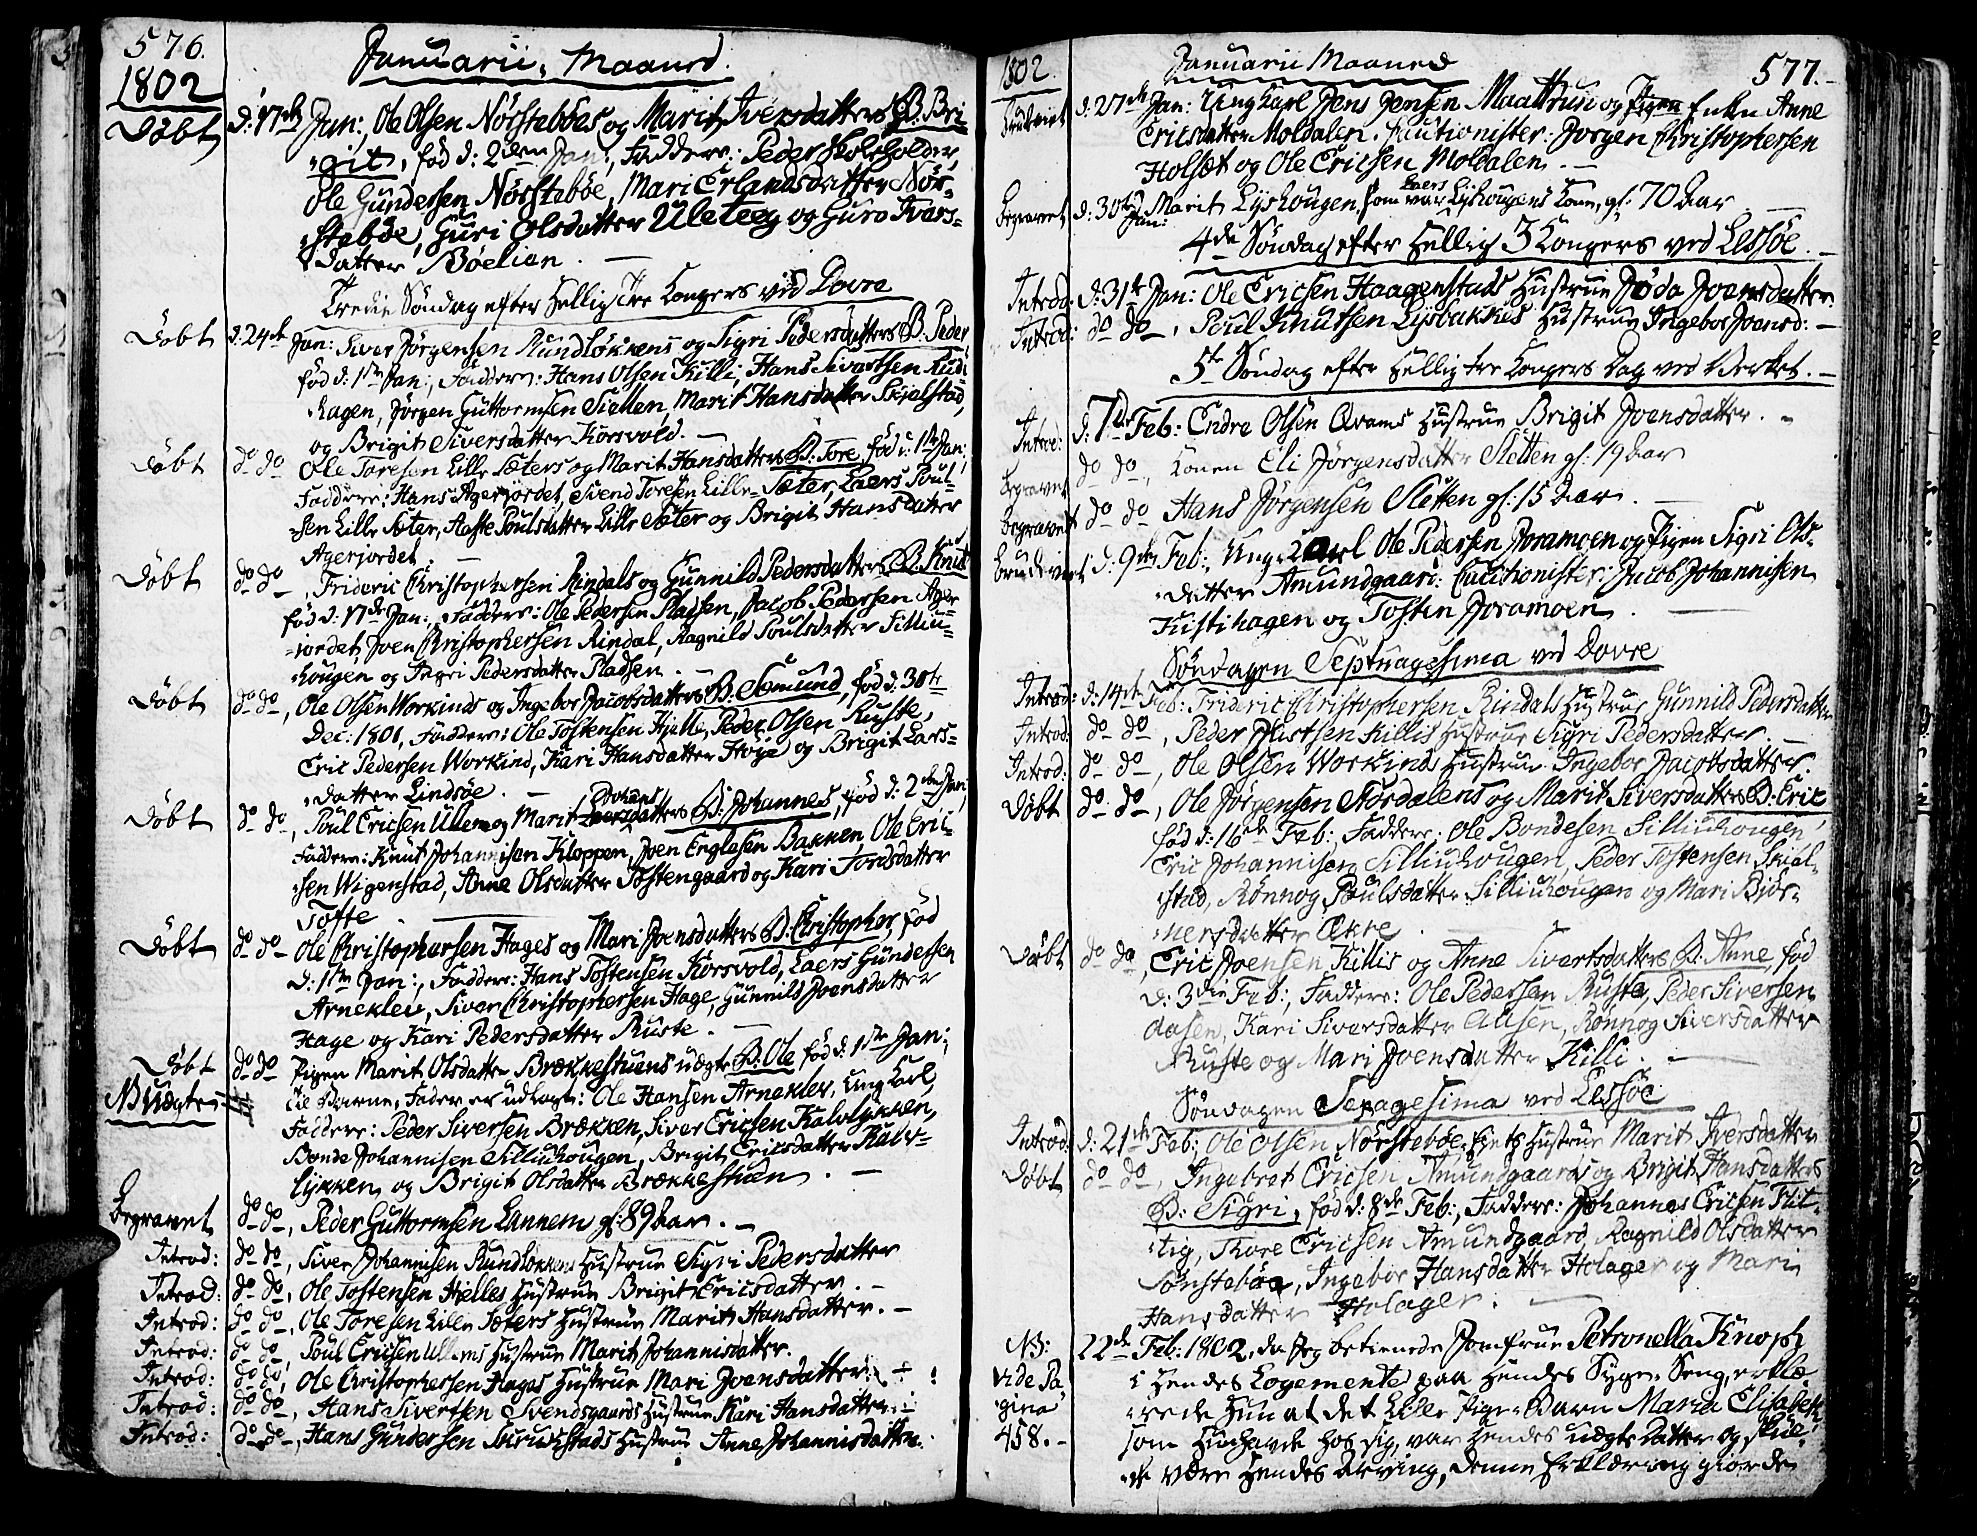 576.
Januarii Maaned.
1802
Døbt d: 17de Jan: Ole Olsen Nørstebøes og Marit Iversdatters B. Bri-
git, fød d: 2den Jan:, Faddere: Peder Skoleholder,
Ole Gundersen Nørstebøe, Mari Erlandsdatter Nør-
stebøe, Guri Olsdatter Uleteeg og Guro Ivars-
datter Bøelien.
Tredie Søndag efter Hellig Tre Kongers ved Dovre
Døbt d: 24de Jan: Siver Jørgensen Rundløkkens og Sigri Pedersdatters B. Peder
fød d: 1ste Jan:, Faddere: Hans Olsen Killi, Hans Sivartsen Rudi
Hagen, Jørgen Guttormsen Sletten, Marit Hansdatter Skjelstad,
og Brigit Siversdatter Korsvold.
Døbt do do Ole Toresen Lille Sæters og Marit Hansdatters B: Tore, fød d: 1ste Jan:,
Faddere: Hans Agerjordet, Svend Toresen Lille-Sæter, Laers Poul-
sen Lille Sæter, Aaste Poulsdatter Lille Sæter og Brigit Hansdatter
Agerjordet
Døbt do do, Frideric Christophersen Rindals og Gunnild Pedersdatters B. Knut
fød d: 17de Jan:, Faddere: Ole Pedersen Pladsen, Jacob Pedersen Ager-
jordet, Joen Christophersen Rindal, Ragnild Poulsdatter Silliu-
hougen og Ingri Pedersdatter Pladsen.
Døbt do do, Ole Olsen Workinds og Ingebor Jacobsdatters B. Sæmund, fød d: 30te
Dec: 1801, Faddere: Ole Tostensen Hjelle, Peder Olsen Ruste,
Eric Pedersen Workind, Kari Hansdatter Hoye og Brigit Lars-
datter Lindsøe.
Døbt do do, Poul Ericsen Ullems og Marit Johans datters B: Johannes, fød d: 2den Jan:,
Faddere: Knut Johannisen Kloppen, Joen Englesen Bakken, Ole Eric-
sen Wigenstad, Anne Olsdatter Tostengaard og Kari Tordsdatter
Tofte.
Døbt do do Ole Christophersen Hages og Mari Joensdatters B: Christopher, fød
d: 1ste Jan:, Faddere: Hans Tostensen Korsvold, Laers Gundersen
Arneklev, Siver Christophersen Hage, Gunnild Joensdatter
Hage og Kari Pedersdatter Ruste.
Døbt do do Pigen Marit Olsdatter Brækkestuens uægte B: Ole fød d: 1ste Jan:,
NB Uægte til Barne-Fader er udlagt: Ole Hansen Arneklev, Ung Karl,
Faddere: Peder Siversen Brækken, Siver Ericsen Kalvløkken,
Bonde Johannisen Silliuhougen, Brigit Ericsdatter Kalv-
løkken og Brigit Olsdatter Brækkestuen.
Begravet do do, Peder Guttormsen Lannem gl: 89 Aar.
Introd: do do, Siver Johannisen Rundløkkens Hustrue Sigri Pedersdatter
Introd: do do, Ole Tostensen Hjelles Hustrue Brigit Ericsdatter.
Introd: do do, Ole Toresen Lille Sæters Hustrue Marit Hansdatter.
Introd: do do, Poul Ericsen Ullems Hustrue Marit Johannisdatter.
Introd: do do, Ole Christophersen Hages Hustrue Mari Joensdatter.
Introd: do do, Hans Sivertsen Svendsgaards Hustrue Kari Hansdatter.
Introd: do do, Hans Gundersen Hustrue Anne Johannisdatter.
1802.
Januarii Maaned
577.
d: 27de Jan: Ung Karl Jens Jensen Maattrue og Pigen Enken Anne
Ericsdatter Moldalen. Cautionister: Jørgen Christophersen
Holsæt og Ole Ericsen Moldalen.
Begravet d: 30te Jan: Marit Lyshougen, som var Laers Lyshougens Kone, gl: 70 Aar
4de Søndag efter Hellig 3 Kongers ved Lessøe.
Introd: d: 31te Jan: Ole Ericsen Haagenstads Hustrue Jøda Joensdatter
Introd: do do, Poul Knutsen Lysbakkes Hustrue Ingebor Joensd:
5te Søndag efter Hellig tre Kongers Dag ved Verket.
Introd: d: 7de Feb: Endre Olsen Qvams Hustrue Brigit Joensdatter.
Begravet do do, Konen Eli Jørgensdatter Sletten gl: 19 Aar
Begravet do do Hans Jørgensen Sletten gl: 15 Aar.
Brudeviet d: 9de Feb:, Ung Karl Ole Pedersen Joramoen og Pigen Sigri Ols-
datter Amundgaard: Cautionister: Jacob Johannisen
Tustihagen og Tosten Joramoen.
Søndagen Septuagesima ved Dovre
Introd: d: 14de Feb: Frideric Christophersen Rindals Hustrue Gunnild Pedersdatter
Introd: do do, Peder Justsen Killis Hustrue Sigri Pedersdatter.
Introd: do do, Ole Olsen Workinds Hustrue Ingebor Jacobsdatter.
Døbt do do, Ole Jørgensen Stordalens og Marit Siversdatters B: Eric
fød d: 16de Feb: Faddere: Ole Bondesen Silliuhougen,
Eric Johannisen Silliuhougen, Peder Tostensen Skiel-
stad, Rønnog Poulsdatter Silliuhougen og Mari Biør-
nersdatter Ekre.
Døbt do do, Eric Joensen Killis og Anne Sivertsdatters B. Anne, fød
d: 3die Feb:, Faddere: Ole Pedersen Ruste, Peder Siversen
Aasen, Kari Siversdatter Aasen, Rønnog Siversdatter
Ruste og Mari Joensdatter Killi.
Søndagen Sexagesima ved Lessøe
Introd: d: 21de Feb: Ole Olsen Nørstebøe, Hustrue Marit Iversdatter
Døbt do do, Ingebret Ericsen Amundgaards og Brigit Hansdatters
B: Sigri, fød d: 8de Feb:, Faddere: Johannes Ericsen Flit-
tig, Thore Ericsen Amundgaard, Ragnild Olsdatter
Sønstebøe, Ingebor Hansdatter Holager og Mari
Hansdatter Holager.
NB: 22de Feb: 1802, da Jeg betienede Jomfrue Petronella Knoph
vide Pa- i Hendes Logemente paa Hendes Syge-Seng, erklæ-
gina rede Hun at det Lille Pige-Barn Maria Elisabeth
458. som Hun havde hos sig, var Hendes uægte Datter og skul-
de være Hendes Arving, denne Erklæring giorde